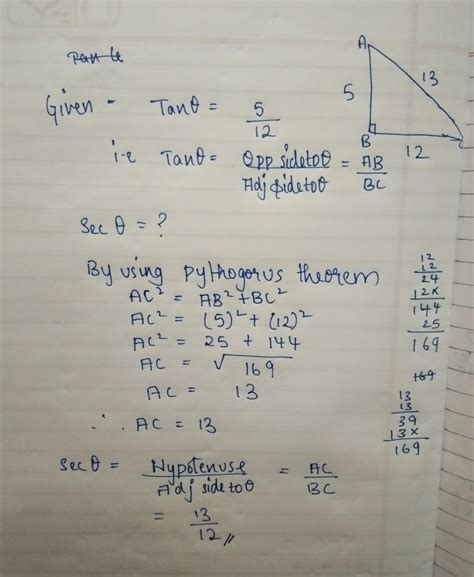 Tan θ
A
Given - Tanθ = 5/12
5
13
B
12
C
i.e Tanθ = Opp side to θ / Adj side to θ = AB/BC
Sec θ = ?
By using pythogorus theorem
AC² = AB² + BC²
AC² = (5)² + (12)²
AC² = 25 + 144
AC = √169
AC = 13
∴ AC = 13
12
12
24
12×
144
25
169
169
13
13
39
13×
169
Sec θ = Hypotenuse / Adj side to θ = AC/BC
= 13/12 //